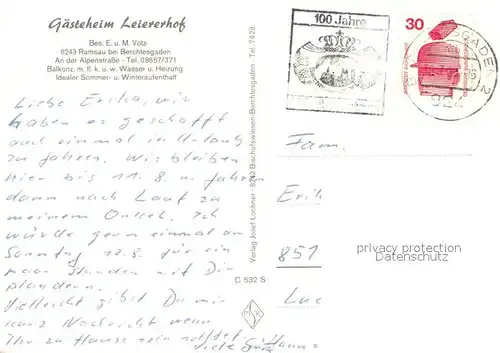 Gästeheim Leiererhof
Bes. E. u. M. Votz
8243 Ramsau bei Berchtesgaden
An der Alpenstraße - Tel. 08657/371
Balkonz. m. fl. k. u. w. Wasser u. Heizung
Idealer Sommer- u. Winteraufenthalt
Liebe Erika, wir
haben es geschafft
auch einmal in Urlaub
zu fahren. Wir bleiben
hier bis 11.8. u. fahren
dann nach Lauf zu
meinem Onkel. Ich
würde gern einmal am
Sonntag 12.8. für ein
paar Stunden mit Dir
plaudern.
Vielleicht gibst Du mir
kurz Nachricht wenn
Ihr zu Hause sein
Viele Grüße Hanne
Verlag Josef Lochner - 8242 Bischofswiesen-Berchtesgaden - Tel. 7428
C 532 S
100 Jahre
30
Fam.
Erik
851
Luc
privacy protection
Datenschutz